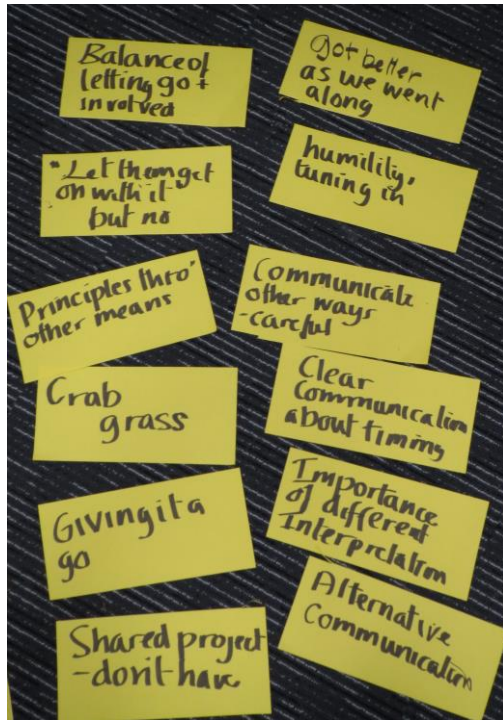 Balance of
letting go +
involved
"Let them get
on with it
but no
Principles thro'
other means
Crab
grass
Giving it a
go
Shared project
- don't have
Got better
as we went
along
humility,
tuning in
Communicate
other ways
- careful
Clear
Communication
about timing
Importance
of different
Interpretation
Alternative
Communication